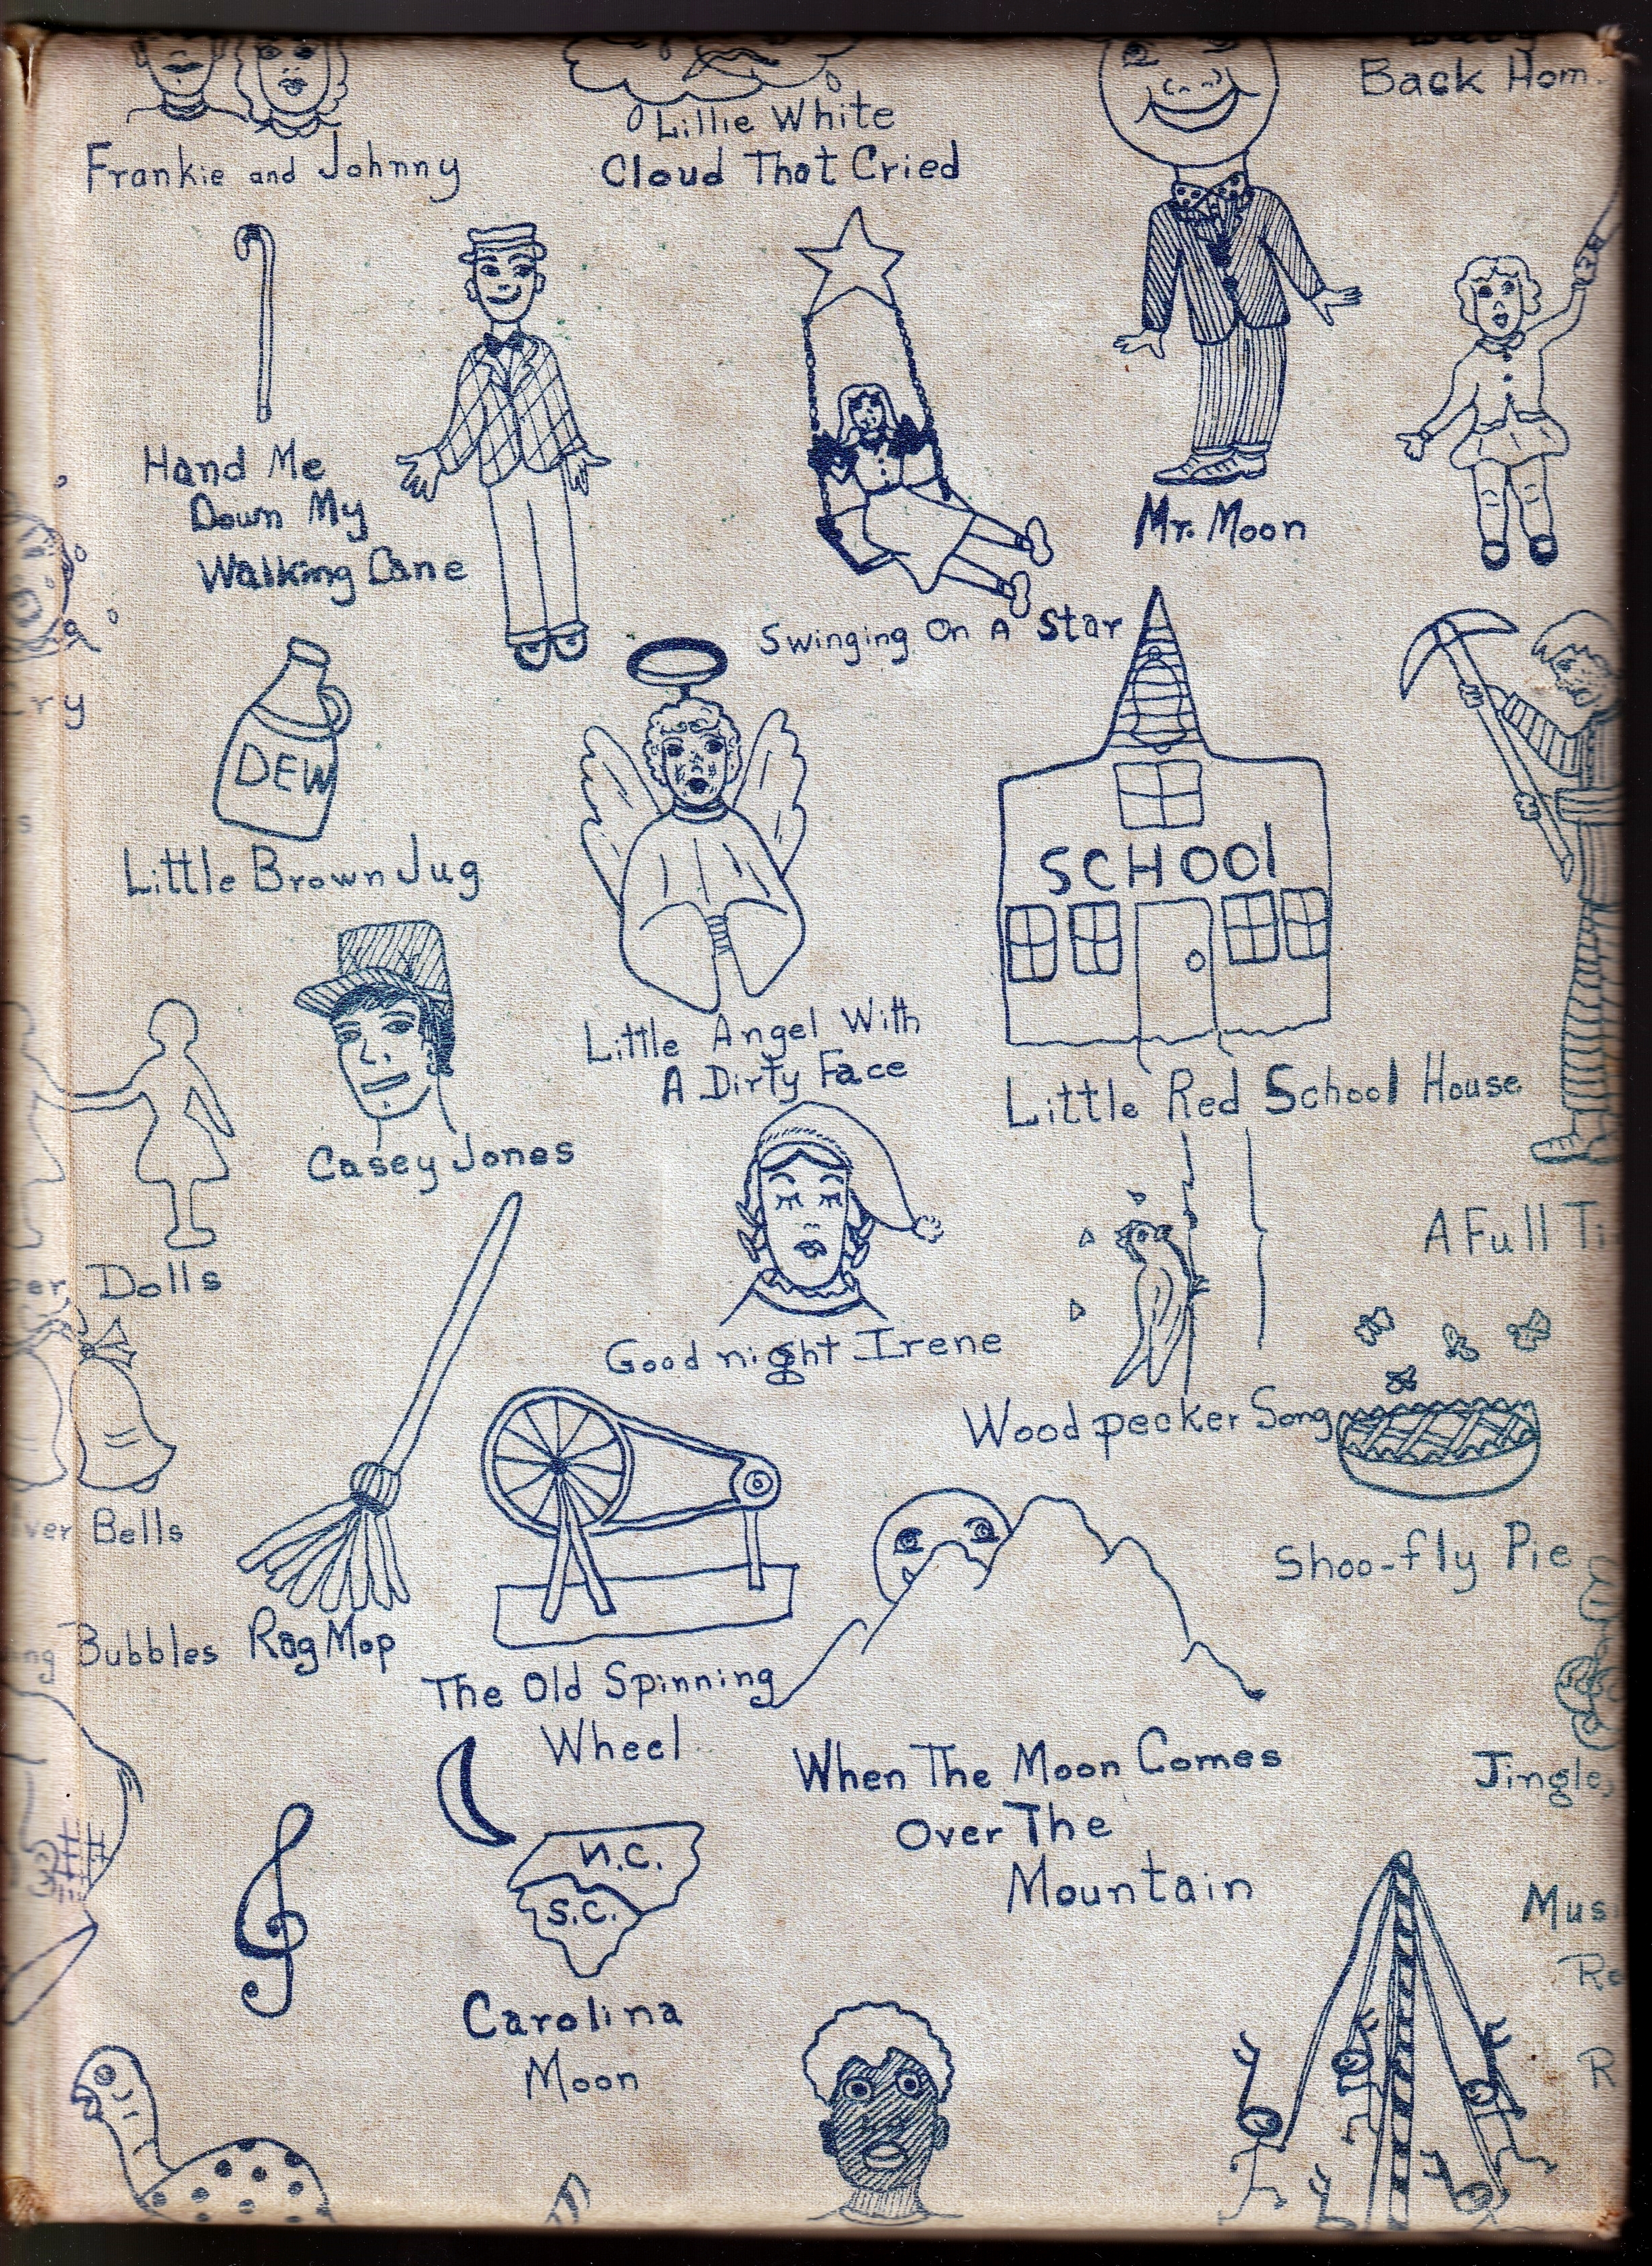 Back Hom
Frankie and Johnny
Lillie White
Cloud That Cried
Hand Me
Down My
Walking Cane
Swinging On A Star
Mr. Moon
ry
DEW
Little Brown Jug
SCHOOl
Little Angel With
A Dirty Face
Little Red School House
Casey Jones
Dolls
A Full Ti
Good night Irene
Wood pecker Song
ver Bells
Shoo-fly Pie
Bubbles
Rag Mop
The Old Spinning
Wheel
When The Moon Comes
Over The
Mountain
Jingle
N.C.
S.C.
Carolina
Moon
Mus
Re
R